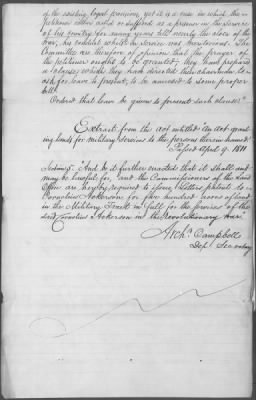 of the existing legal provision, yet it is a case in which the
petitioner either acted or suffered as a prisoner in the service
of his country for many years till nearly the close of the
War, his conduct whilst in service was meritorious. The
Committee are therefore of opinion that the prayer of
the petitioner ought to be granted; they have prepared
a clause which they have directed their chairman to
ask for leave to present, to be annexed to some proper
bill
Ordered that leave be given to present said clause"
Extract from the act entitled An act grant
ing lands for military services to the persons therein named
Passed April 9. 1811
Section 5. And be it further enacted that it shall and
may be lawful for, and the Commissioners of the Land
Office are hereby required to issue letters patent to
Cornelius Ackerson for five hundred acres of land
in the Military Tract in full for the services of the
said Cornelius Ackerson in the Revolutionary War.
Archd Campbell
Dep Secretary